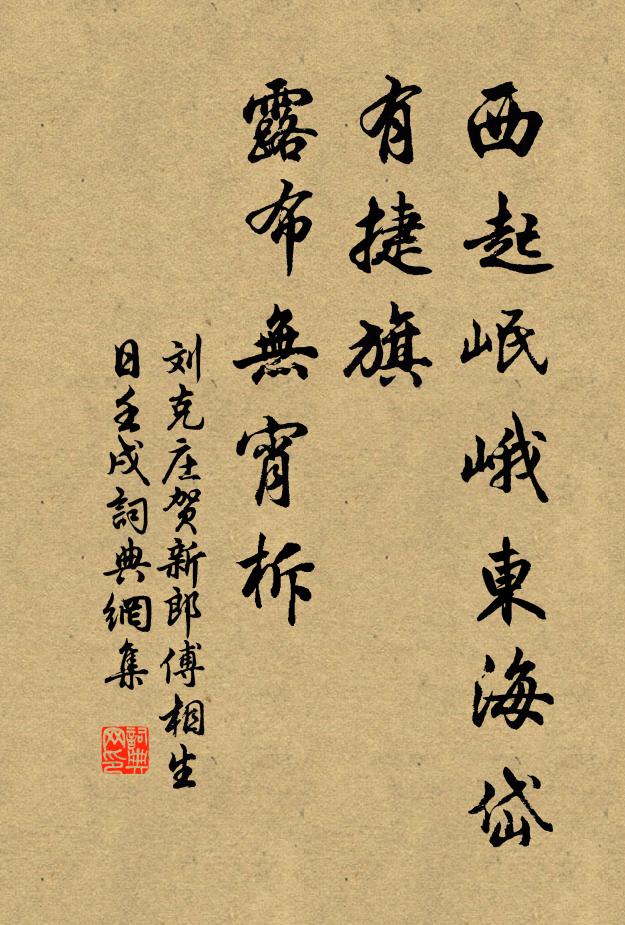 西起岷峨東海岱
有捷旗
露布無宵柝
刘克庄贺新郎傅相生
日壬戌詞典網集
詞典
网印